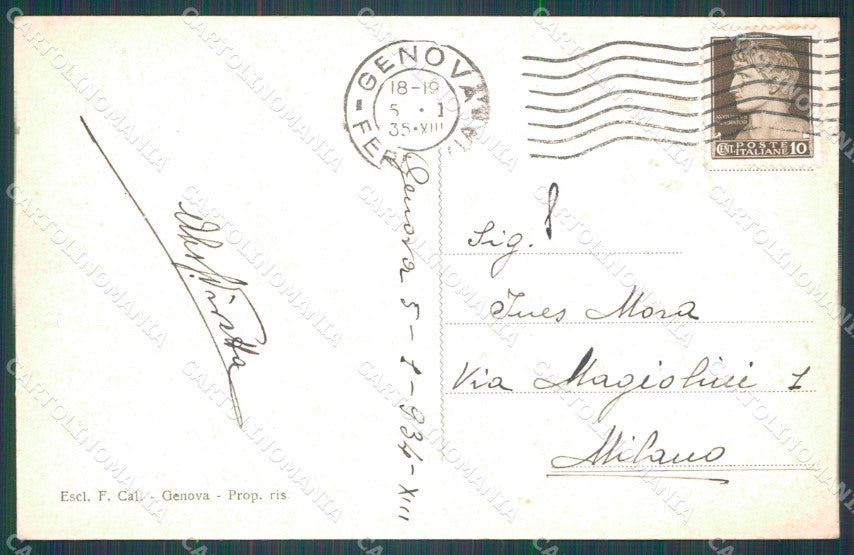 GENOVA
18-19
5 · 1
35·XIII
FER
CENT. POSTE ITALIANE 10
Genova 5-1-934-XIII
Sig.
Ines Mora
Via Magiolini 1
Milano
Escl. F. Cali - Genova - Prop. ris.
CARTOLINOMANIA